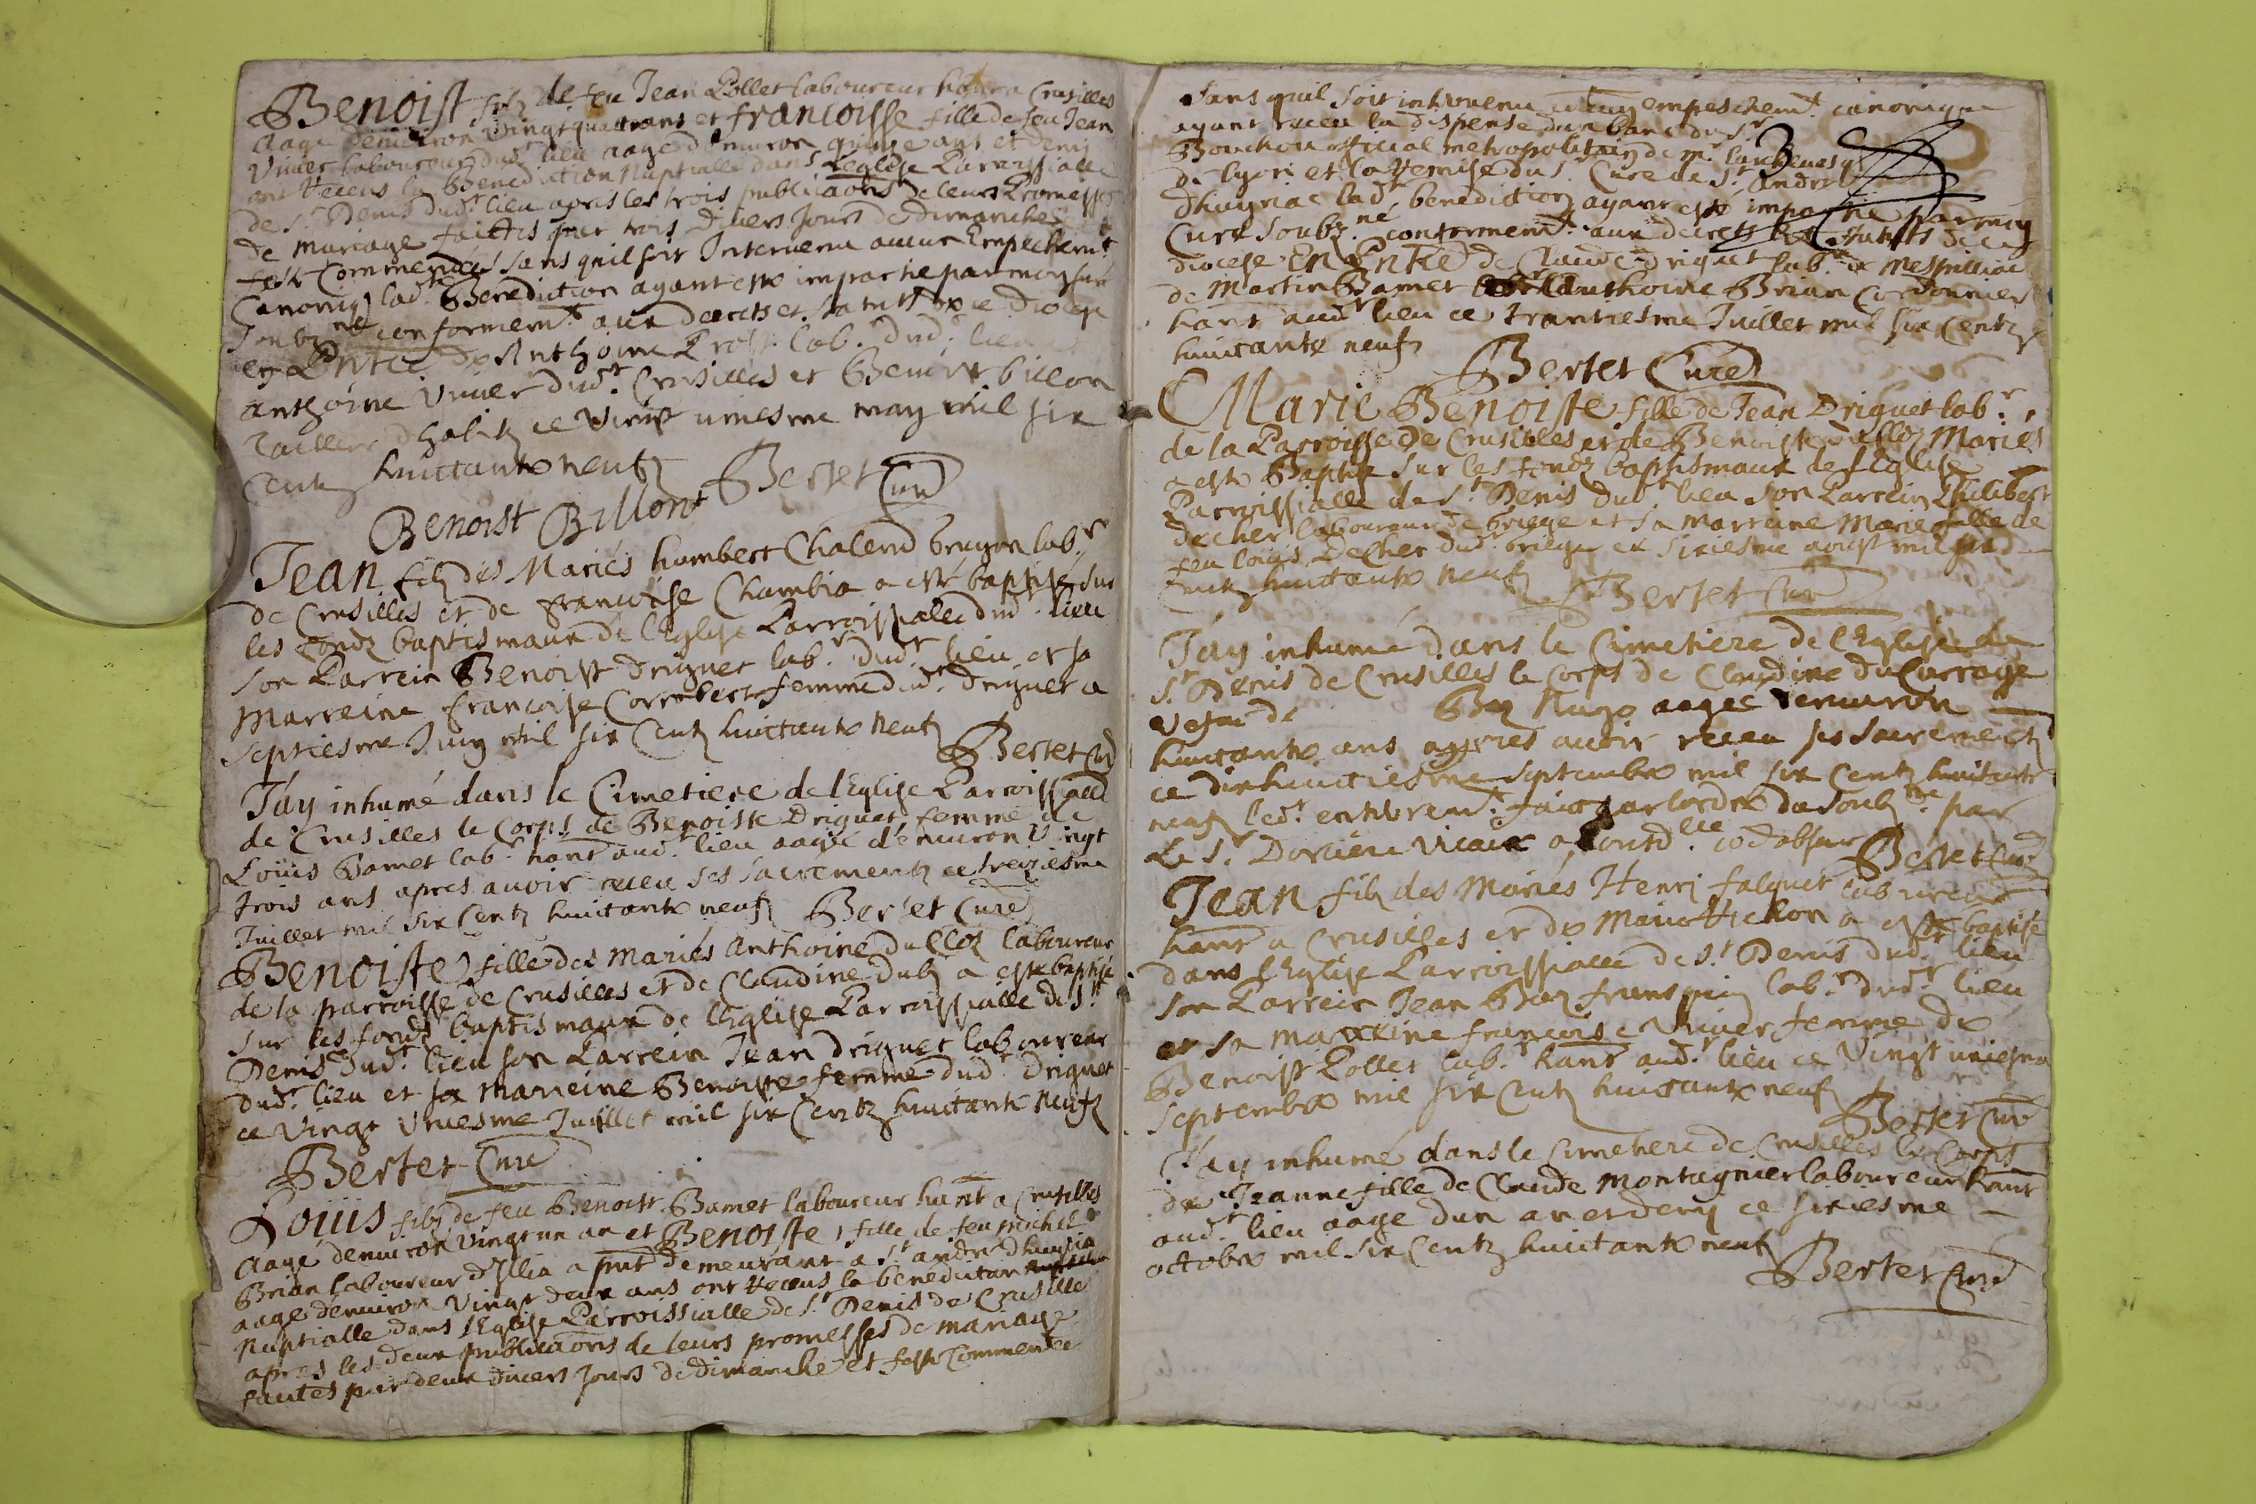 Benoist filz de feu Jean Pollet laboureur hant a Crusilles
aagé denuiron vingt quatr ans et francoisse fille de feu Jean
Viuier laboureur dudt lieu aagé denuiron quinze ans et demy
ont Receus la Benediction Nuptialle dans L'eglise Parroissialle
de St Denis dudt lieu apres les trois publications de leurs Promesses
de Mariage faittes par trois diuers Jours de dimanches
feste Commendées sans quil soit Interuenu aucun Empechemt
Canoniq ladte Benediction ayant este impartie par moy curé
soubzné conformemt aux decrets et statuts de ce diocese
en Pntce de Anthoine labr dudt lieu
anthoine Viuier dudt Crusilles et Benoist billon
tailleur dhabitz ce Vingt uniesme may mil six
Centz huictante neufz Bertet Curé
Benoist Billont
Jean filz des Mariés humbert Chalend bruyon labr
de Crusilles et de francoise Chambia a esté baptisé sur
les fondz baptismaux de l'Eglise Parroissialle dudt lieu
son Parrein Benoist driguet labr dudt lieu et sa
Marreine francoise Corrobert femme dudt driguet ce
septiesme Juin mil six Centz huictante neufz Bertet Curé
J'ay inhumé dans le Cimetiere de l'Eglise Parroissialle
de Crusilles le Corps de Benoiste Driguet femme de
Loüis Bamet labr hant audt lieu aagée d'enuiron vingt
trois ans apres auoir receu ses sacrementz ce treiziesme
Juillet mil six Centz huictante neufz Bertet Curé
Benoiste fille des Mariés Anthoine du Cloz laboureur
de la parroisse de Crusilles et de Claudine Dubz a esté baptisé
sur les fondz baptismaux de l'Eglise Parroissialle de St
Denis dudt lieu son Parrein Jean driguet laboureur
dudt lieu et sa Marreine Benoiste femme dudt Driguet
ce vingt Vniesme Juillet mil six Centz huictante neufz
Bertet Curé
Loüis filz de feu Benoist Bamet laboureur hant a Crusilles
Aagé denuiron vingt un an et Benoiste fille de feu michel
Brian laboureur d'Illia a pnt demeurant a St andré dhuiria
aagé denuiron Vingt deux ans ont Receus la benediction
Nuptialle dans l'Eglise Parroissialle de St Denis de Crusille
apres les deux publications de leurs promesses de mariage
faittes par deux diuers jours de dimanche et feste Commendée
sans quil soit interuenu empeschemt canonique
ayant receu la dispense dun banc du Sr
Bouchou official metropolitain de Mr l'archeuesq
de lyon et la remise du Sr Curé de St André
dhuyriac ladt benediction ayant esté impartie par moy
Curé soubzné conformemt aux decrets et statuts de ce
diocese En Pntce de Claude Driguet labr de Mespilliac
de Martin Bamet anthoine Brian Cordonnier
hant audt lieu ce trantiesme Juillet mil six Centz
huictante neufz
Bertet Curé
Marie Benoiste fille de Jean Driguet labr
de la Parroisse de Crusilles et de Benoiste Mariés
a esté Baptisé sur les fondz baptismaux de l'Eglise
Parroissialle de St Denis dudt lieu son Parrein Philibert
decher laboureur de briege et sa Marreine Marie fille de
feu loüis Decher dudt briege ce sixiesme aoust mil six
Centz huictante neufz Bertet Curé
J'ay inhumé dans le Cimetiere de l'Eglise de
St Denis de Crusilles le Corps de Claudine du Currage
vefue de Boz Rugo aagée denuiron
huictante ans appres auoir receu ses sacrementz
ce dixhuictiesme septembre mil six Centz huictante
neufz ledt enterremt faict par lordre du soubzné par
Le Sr Doriere vicaire a
Bertet Curé
Jean filz des Mariés Henri falquet laboureur
hant a Crusilles et de Marie Michon a esté baptisé
dans l'Eglise Parroissialle de St Denis dudt lieu
son Parrein Jean Boz fransquin labr dudt lieu
et sa Marreine francoise Viuier femme de
Benoist Pollet labr hant audt lieu ce Vingt uniesme
septembre mil six Centz huictante neufz
Bertet Curé
J'ay inhumé dans le Cimetiere de Crusilles le Corps
de Jeanne fille de Claude Montagnier laboureur hant
audt lieu aagé dun an et demy ce sixiesme
octobre mil six Centz huictante neufz
Bertet Curé